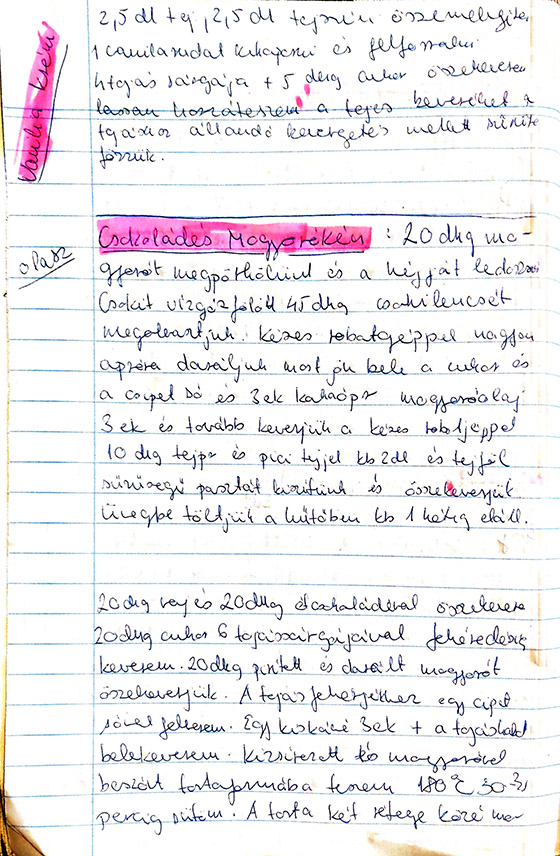 Vanília krém
2,5 dl tej, 2,5 dl tejszín összemelegítem
1 vaníliarudat kikaparni és felforralni
4 tojás sárgája + 5 dkg cukor összekeverem
lassan hozzáteszem a tejes keveréket a
tojáshoz állandó kevergetés mellett sűrűre
főzzük.
Csokoládés Mogyorókrém : 20 dkg mo-
olasz
gyorót megpörkölünk és a héjját ledörzsöl
Csokit vízgőz fölött 45 dkg csokilencsét
megolvasztjuk. kézes robotgéppel nagyon
apróra daráljuk most jön bele a cukor és
a csipet só és 3 ek kakaópr mogyoróolaj
3 ek és tovább keverjük a kézes robotgéppel
10 dkg tejpr és pici tejjel kb 2 dl és tejföl
sűrűségű pasztát készítünk és összekeverjük
üvegbe töltjük a hűtőben kb 1 hétig eláll.
20 dkg vaj és 20 dkg étcsokoládéval összekeverem
20 dkg cukor 6 tojássárgájával fehéredésig
keverem. 20 dkg pirított és darált mogyorót
összekeverjük. A tojás fehérjékhez egy csipet
sóval felverem. Egy kiskávé 3 ek + a tojáshabot
belekeverem. kizsírozott és mogyoróval
beszórt tortaformába teszem 180 °C 30-35
percig sütöm. A torta két rétege közé mo-